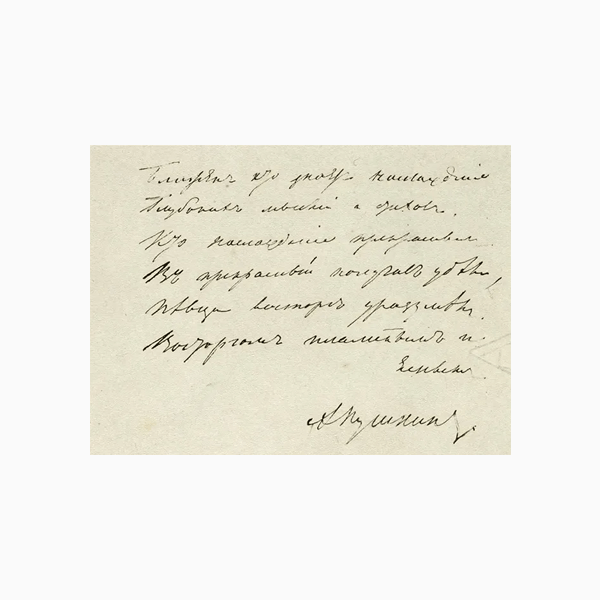 Блаженъ кто знаетъ наслажденіе
Глубокихъ мыслей и стиховъ.
Кто наслажденіе прекраснымъ
Въ прекрасный получилъ удѣлъ,
Пѣвца восторгъ уразумѣлъ.
Восторгомъ пламеннымъ и
яснымъ.
А Пушкинъ.